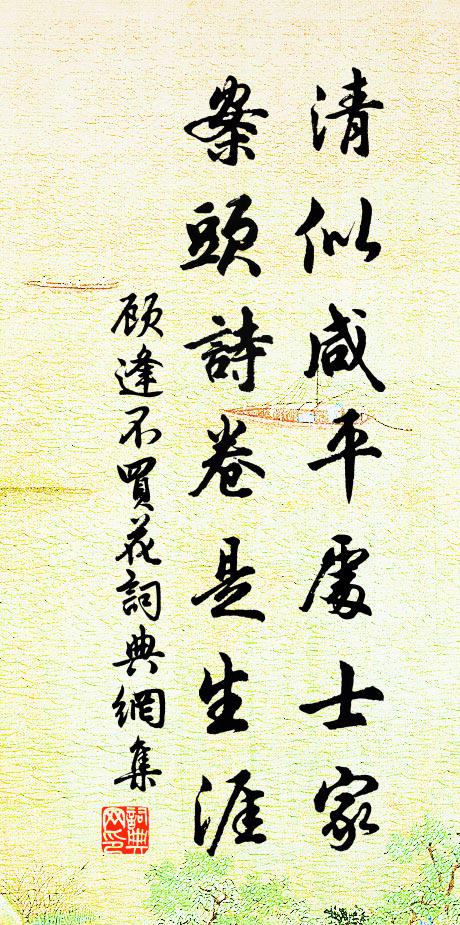 清似咸平處士家
案頭詩卷是生涯
顾逢不買花詞典網集
詞典網印